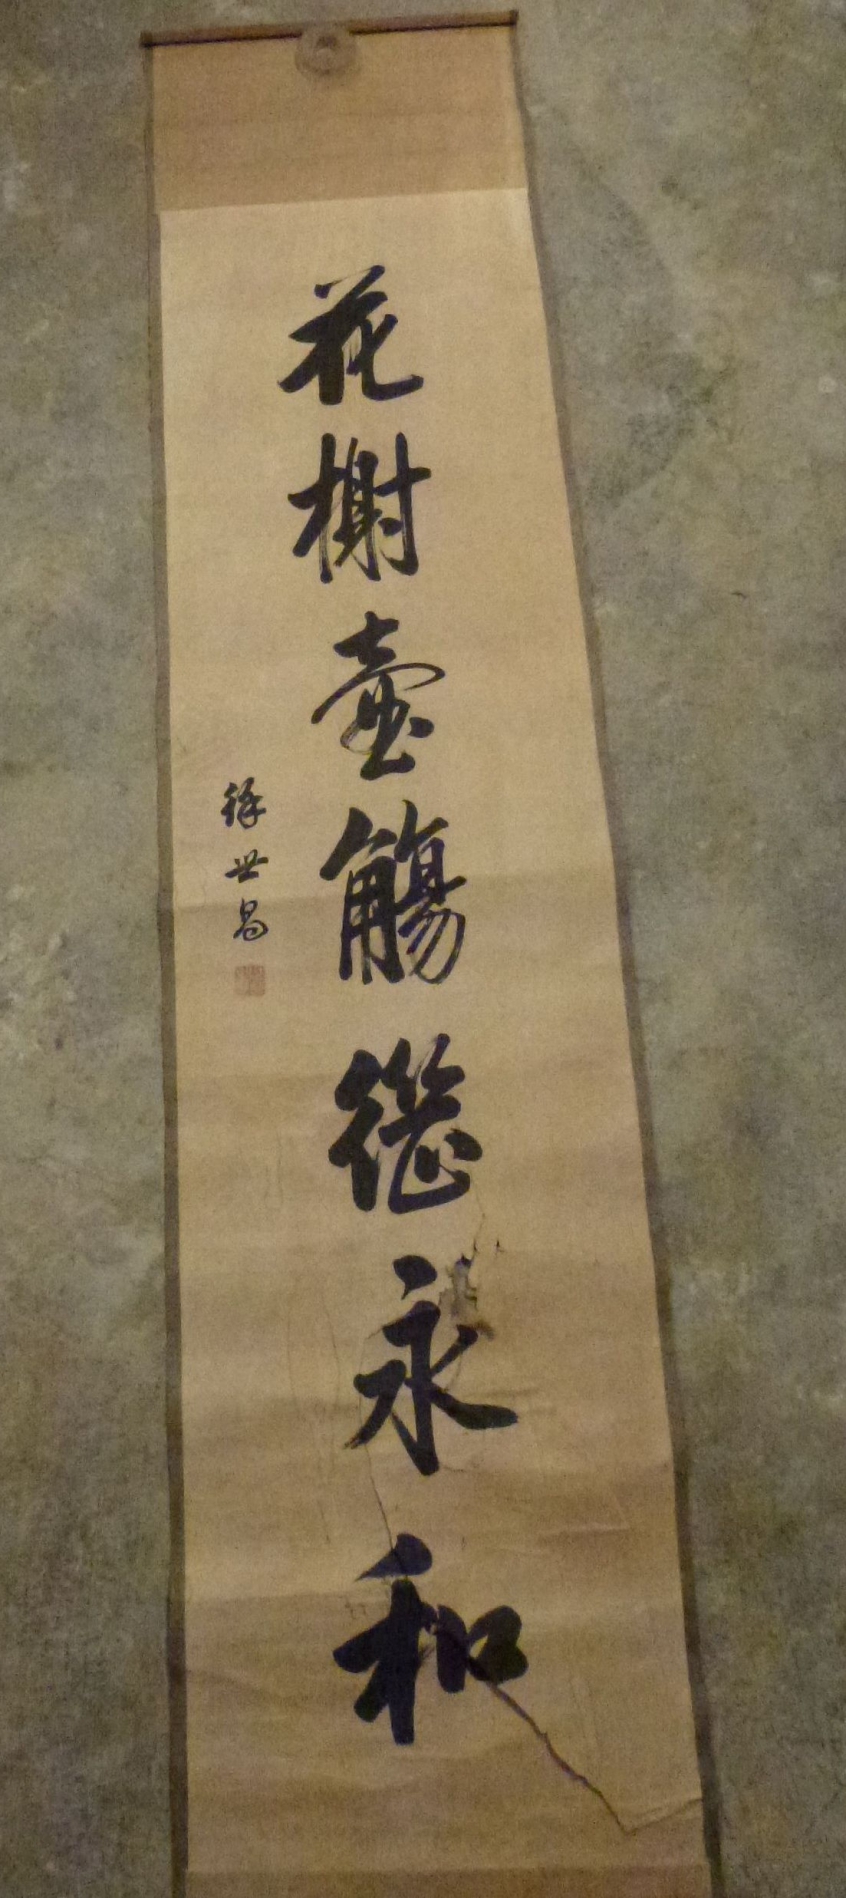 花榭壺觴從永和
徐世昌